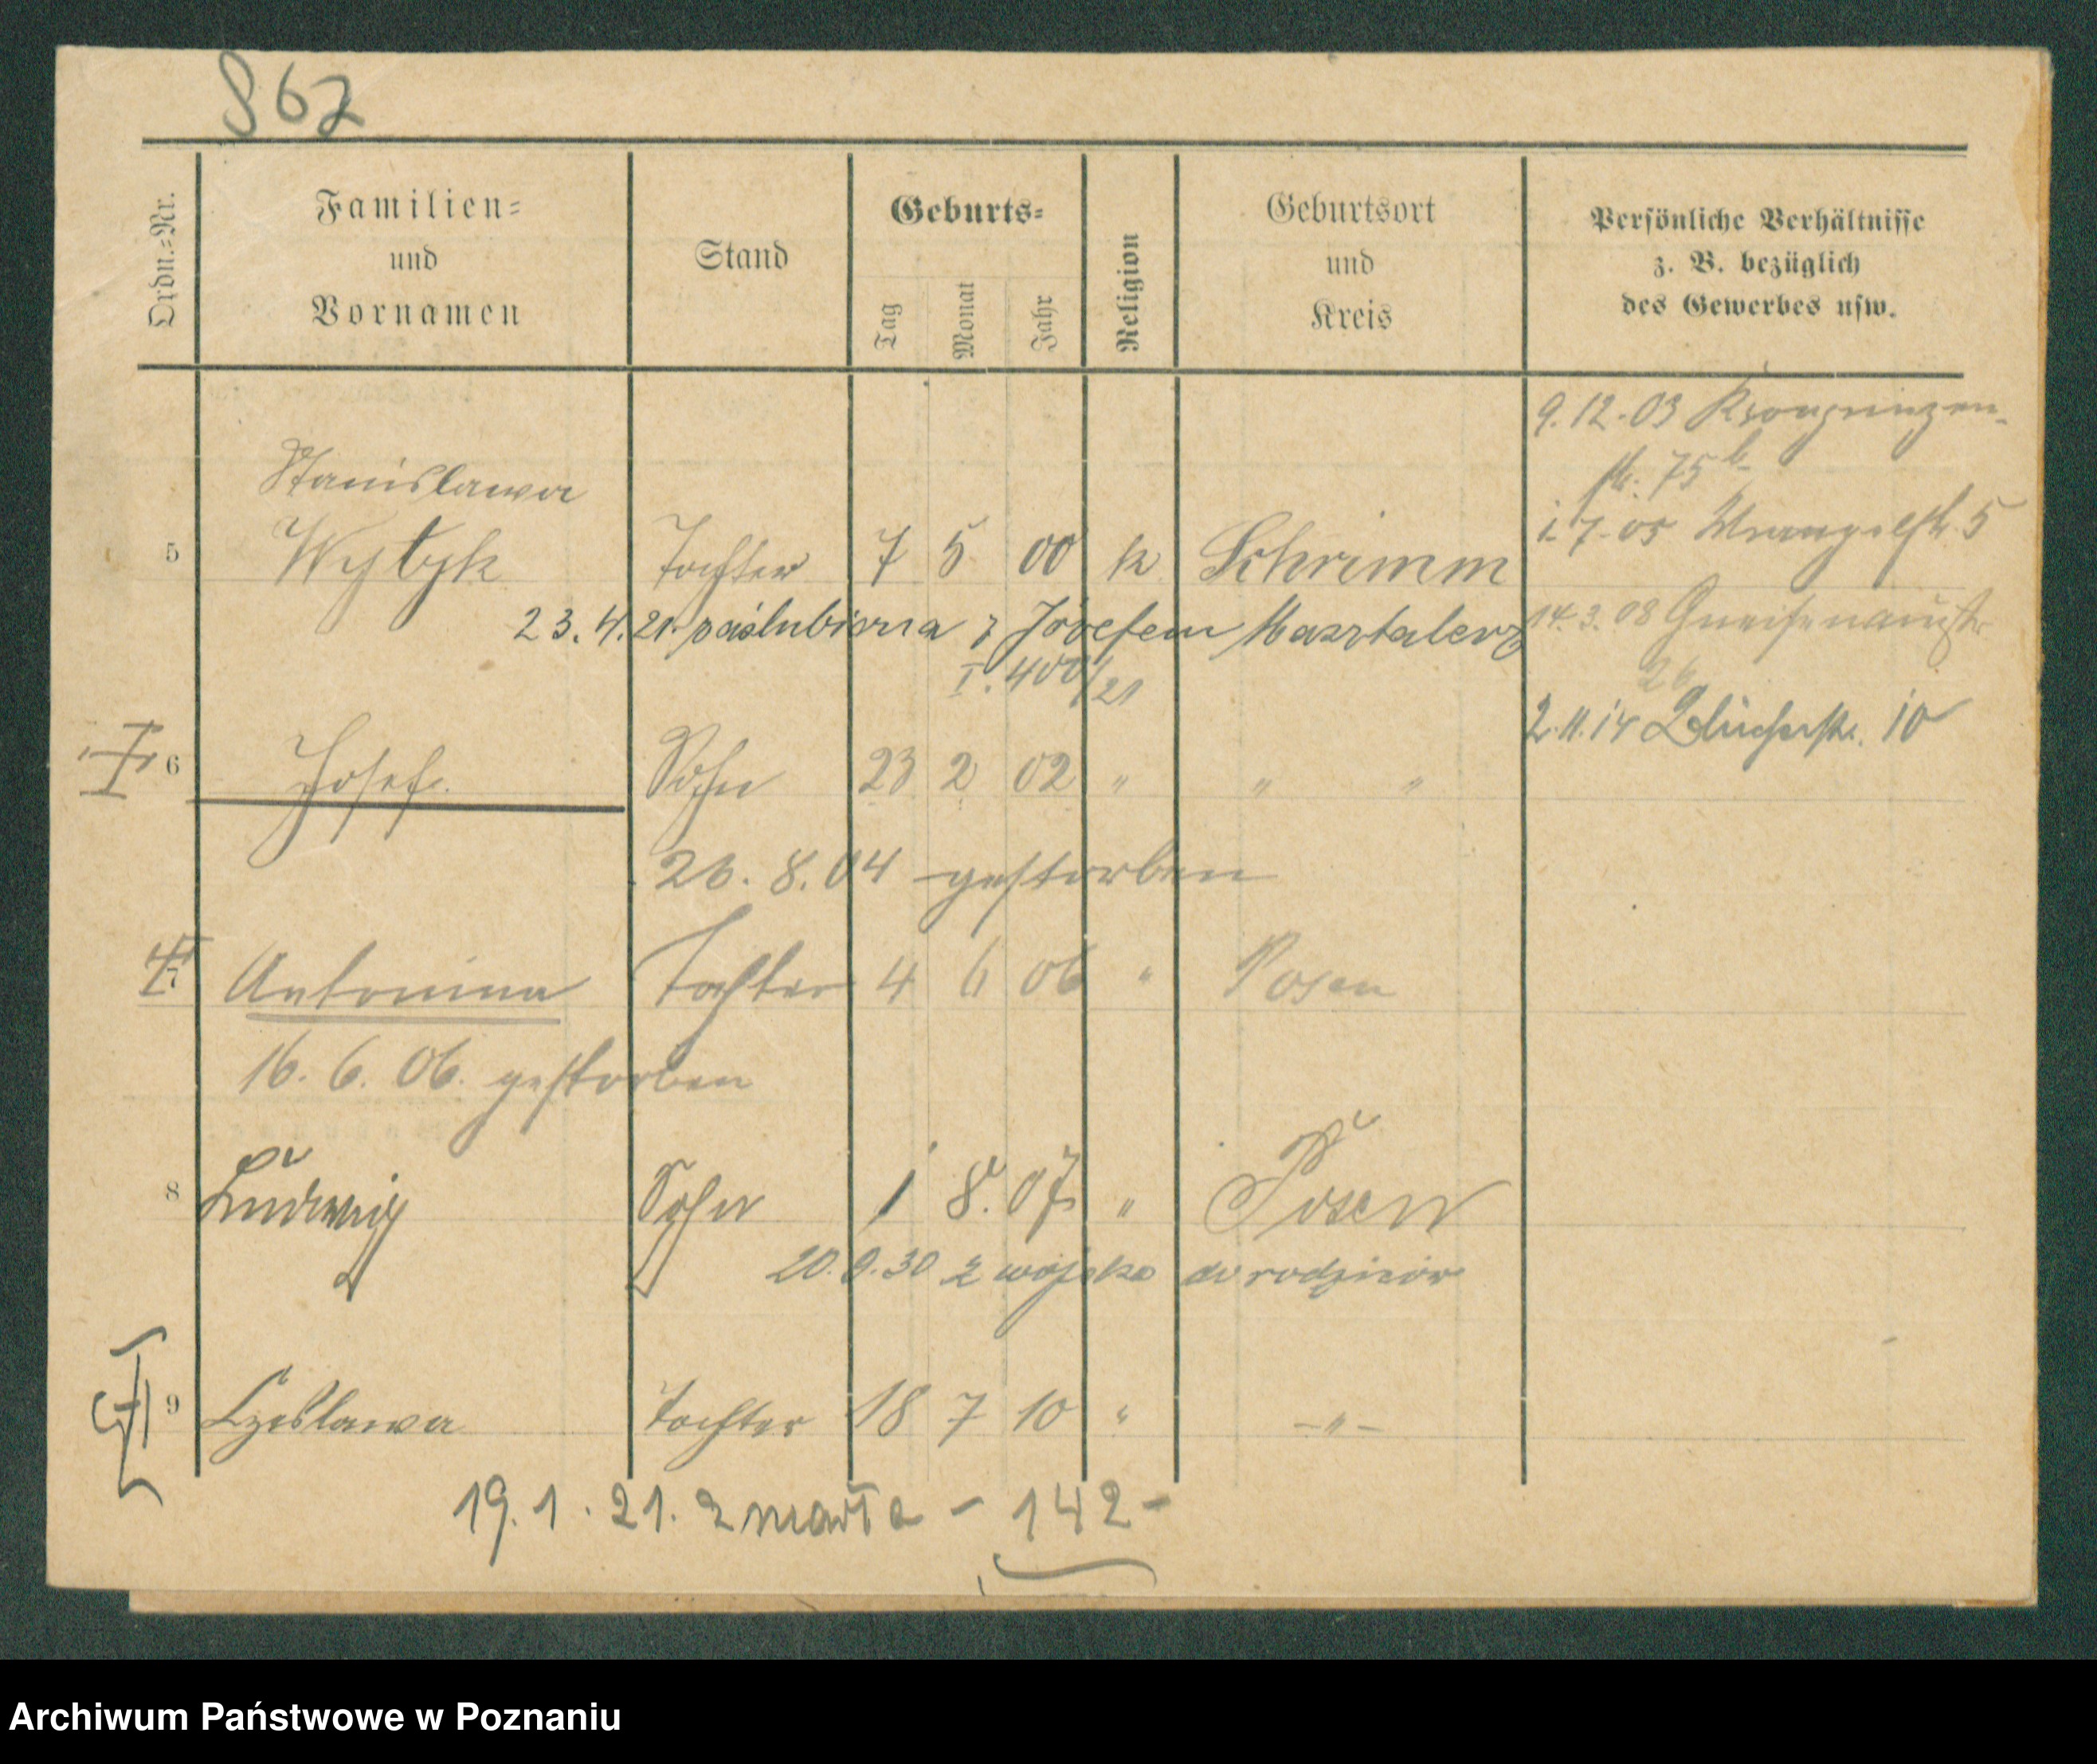 867
Ordn.=Nr.
Familien=
und
Vornamen
Stand
Geburts=
Tag
Monat
Jahr
Religion
Geburtsort
und
Kreis
Persönliche Verhältnisse
z. B. bezüglich
des Gewerbes usw.
9.12.03 Kronprinzen-
str. 75b
1.7.05 Wrangelstr. 5
14.3.08 Gneisenaustr.
26
2.11.14 Blücherstr. 10
Stanislawa
5 Wybyk Tochter 7 5 00 k Schrimm
23.4.21. zaślubiona z Józefem Masztalerz
I. 400/21
6 Josef Sohn 23 2 02 " " "
26.8.04 gestorben
7 Antonina Tochter 4 6 06 " Posen
16.6.06. gestorben
8 Ludwig Sohn 1 8. 07 " Posen
20.9.30 z wojska do rodziców
9 Czeslawa Tochter 18 7 10 " -"-
19.1.21. zmarła - 142 -
Archiwum Państwowe w Poznaniu